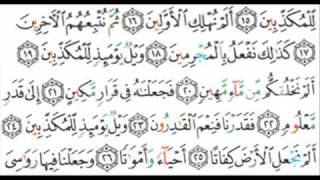 لِّلْمُكَذِّبِينَ ١٥ أَلَمْ نُهْلِكِ ٱلْأَوَّلِينَ ١٦ ثُمَّ نُتْبِعُهُمُ ٱلْءَاخِرِينَ
١٧ كَذَٰلِكَ نَفْعَلُ بِٱلْمُجْرِمِينَ ١٨ وَيْلٌ يَوْمَئِذٍ لِّلْمُكَذِّبِينَ ١٩
أَلَمْ نَخْلُقكُّم مِّن مَّآءٍ مَّهِينٍ ٢٠ فَجَعَلْنَٰهُ فِى قَرَارٍ مَّكِينٍ ٢١ إِلَىٰ قَدَرٍ
مَّعْلُومٍ ٢٢ فَقَدَرْنَا فَنِعْمَ ٱلْقَٰدِرُونَ ٢٣ وَيْلٌ يَوْمَئِذٍ لِّلْمُكَذِّبِينَ ٢٤
أَلَمْ نَجْعَلِ ٱلْأَرْضَ كِفَاتًا ٢٥ أَحْيَآءً وَأَمْوَٰتًا ٢٦ وَجَعَلْنَا فِيهَا رَوَٰسِىَ